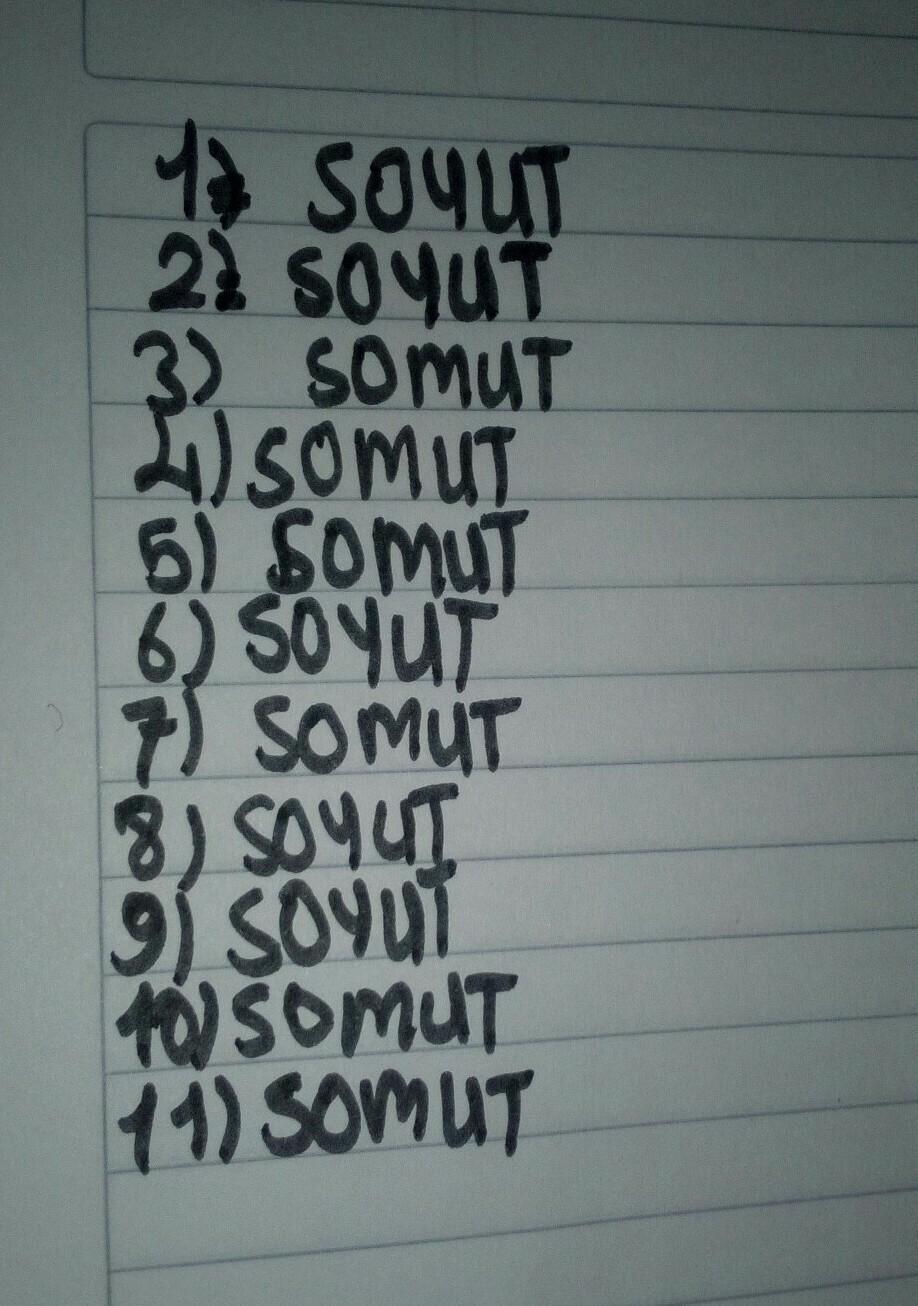 1) SOYUT
2) SOYUT
3) SOMUT
4) SOMUT
5) SOMUT
6) SOYUT
7) SOMUT
8) SOYUT
9) SOYUT
10) SOMUT
11) SOMUT